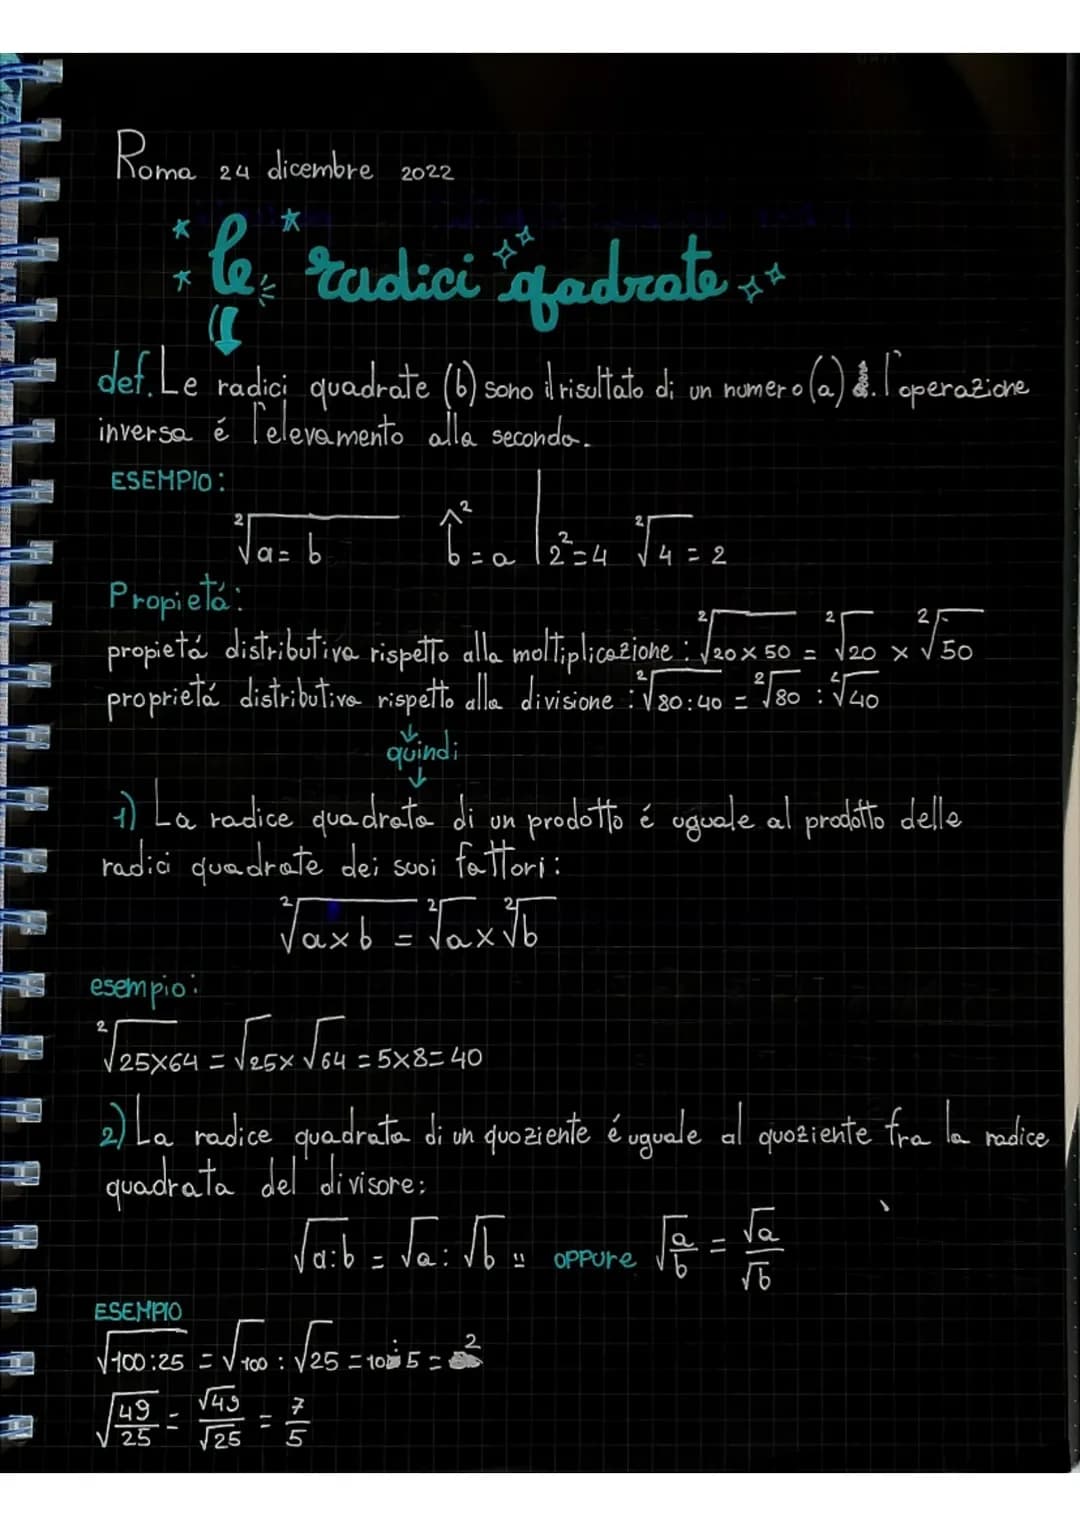 Roma 24 dicembre 2022
le radici qadrate
def. Le radici quadrate (b) sono il risultato di un numero (a) l'operazione
inversa é l'elevamento alla seconda.
ESEMPIO:
²√a = b b² = a | 2² = 4 ²√4 = 2
Propietá:
propietá distributiva rispetto alla moltiplicazione: ²√20 × 50 = ²√20 × ²√50
proprietá distributiva rispetto alla divisione: ²√80:40 = ²√80 : ²√40
quindi
1) La radice quadrata di un prodotto é uguale al prodotto delle
radici quadrate dei suoi fattori:
²√a×b = ²√a × ²√b
esempio:
²√25×64 = √25 × √64 = 5×8 = 40
2) La radice quadrata di un quoziente é uguale al quoziente fra la radice
quadrata del divisore:
√a:b = √a : √b oppure √a/b = √a/√b
ESEMPIO
√100:25 = √100 : √25 = 10:5 = 2
√49/25 = √49/√25 = 7/5